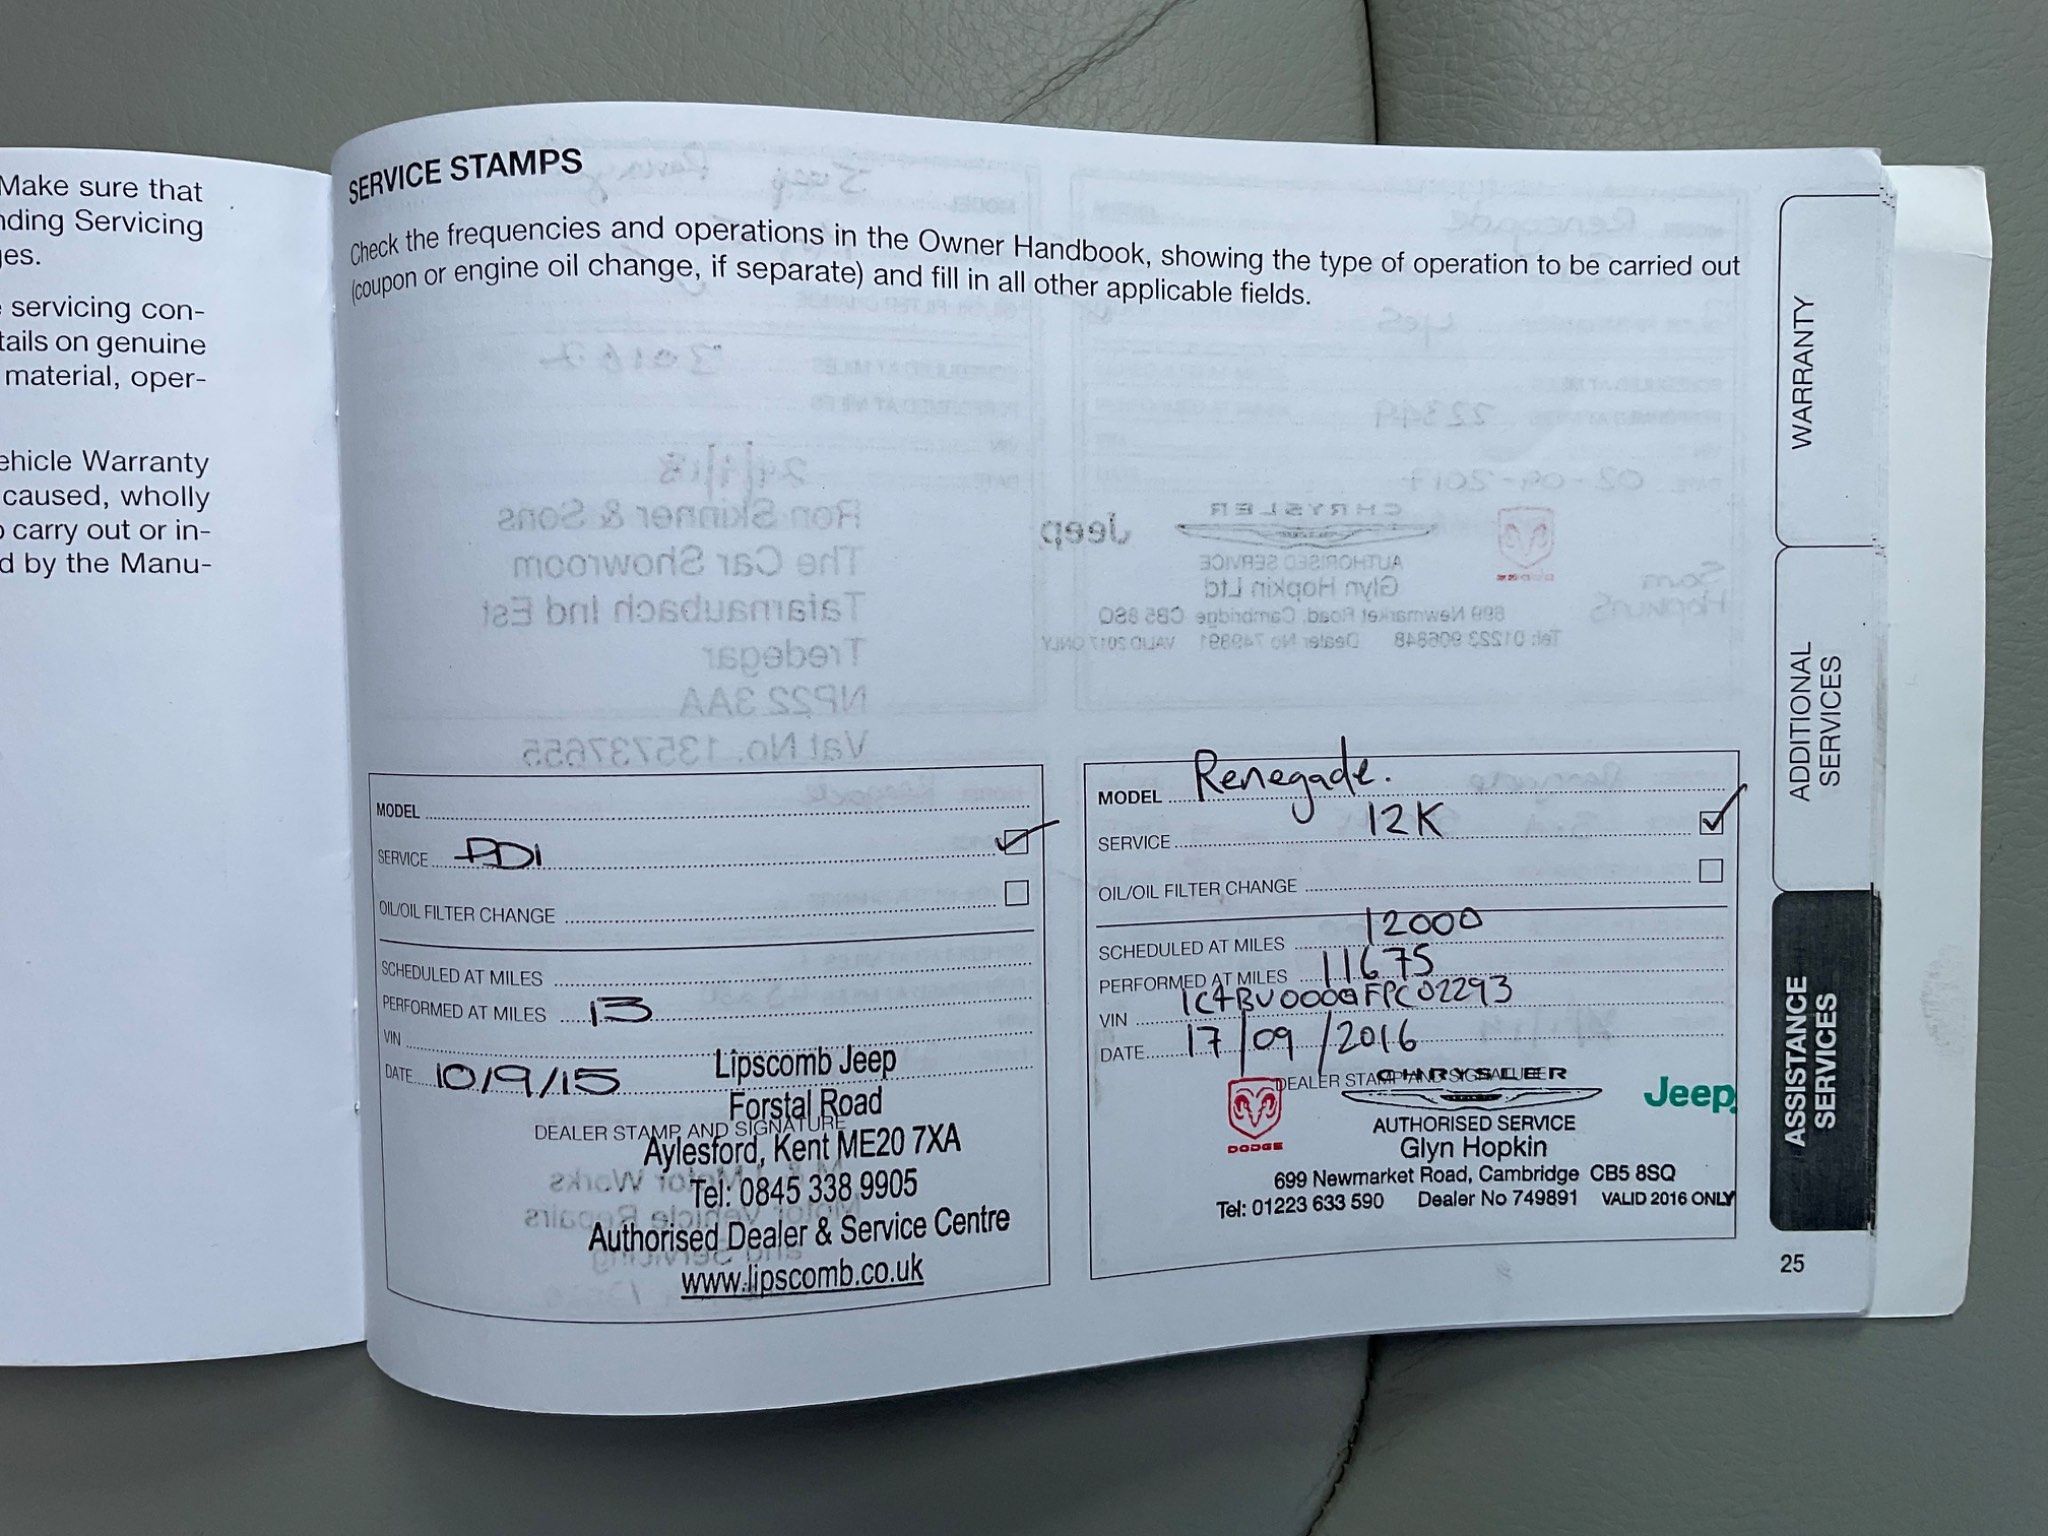 Make sure that
nding Servicing
es.
servicing con-
tails on genuine
material, oper-
ehicle Warranty
caused, wholly
carry out or in-
d by the Manu-
SERVICE STAMPS
Check the frequencies and operations in the Owner Handbook, showing the type of operation to be carried out
(coupon or engine oil change, if separate) and fill in all other applicable fields.
MODEL
SERVICE PDI
OIL/OIL FILTER CHANGE
SCHEDULED AT MILES
PERFORMED AT MILES 13
VIN
DATE 10/9/15
DEALER STAMP AND SIGNATURE
Lipscomb Jeep
Forstal Road
Aylesford, Kent ME20 7XA
Tel: 0845 338 9905
Authorised Dealer & Service Centre
www.lipscomb.co.uk
MODEL Renegade.
SERVICE 12K
OIL/OIL FILTER CHANGE
SCHEDULED AT MILES 12000
PERFORMED AT MILES 11675
VIN 1C4BU0000FPC02293
DATE 17/09/2016
DEALER STAMP AND SIGNATURE
DODGE
CHRYSLER
Jeep
AUTHORISED SERVICE
Glyn Hopkin
699 Newmarket Road, Cambridge CB5 8SQ
Tel: 01223 633 590 Dealer No 749891 VALID 2016 ONLY
WARRANTY
ADDITIONAL
SERVICES
ASSISTANCE
SERVICES
25